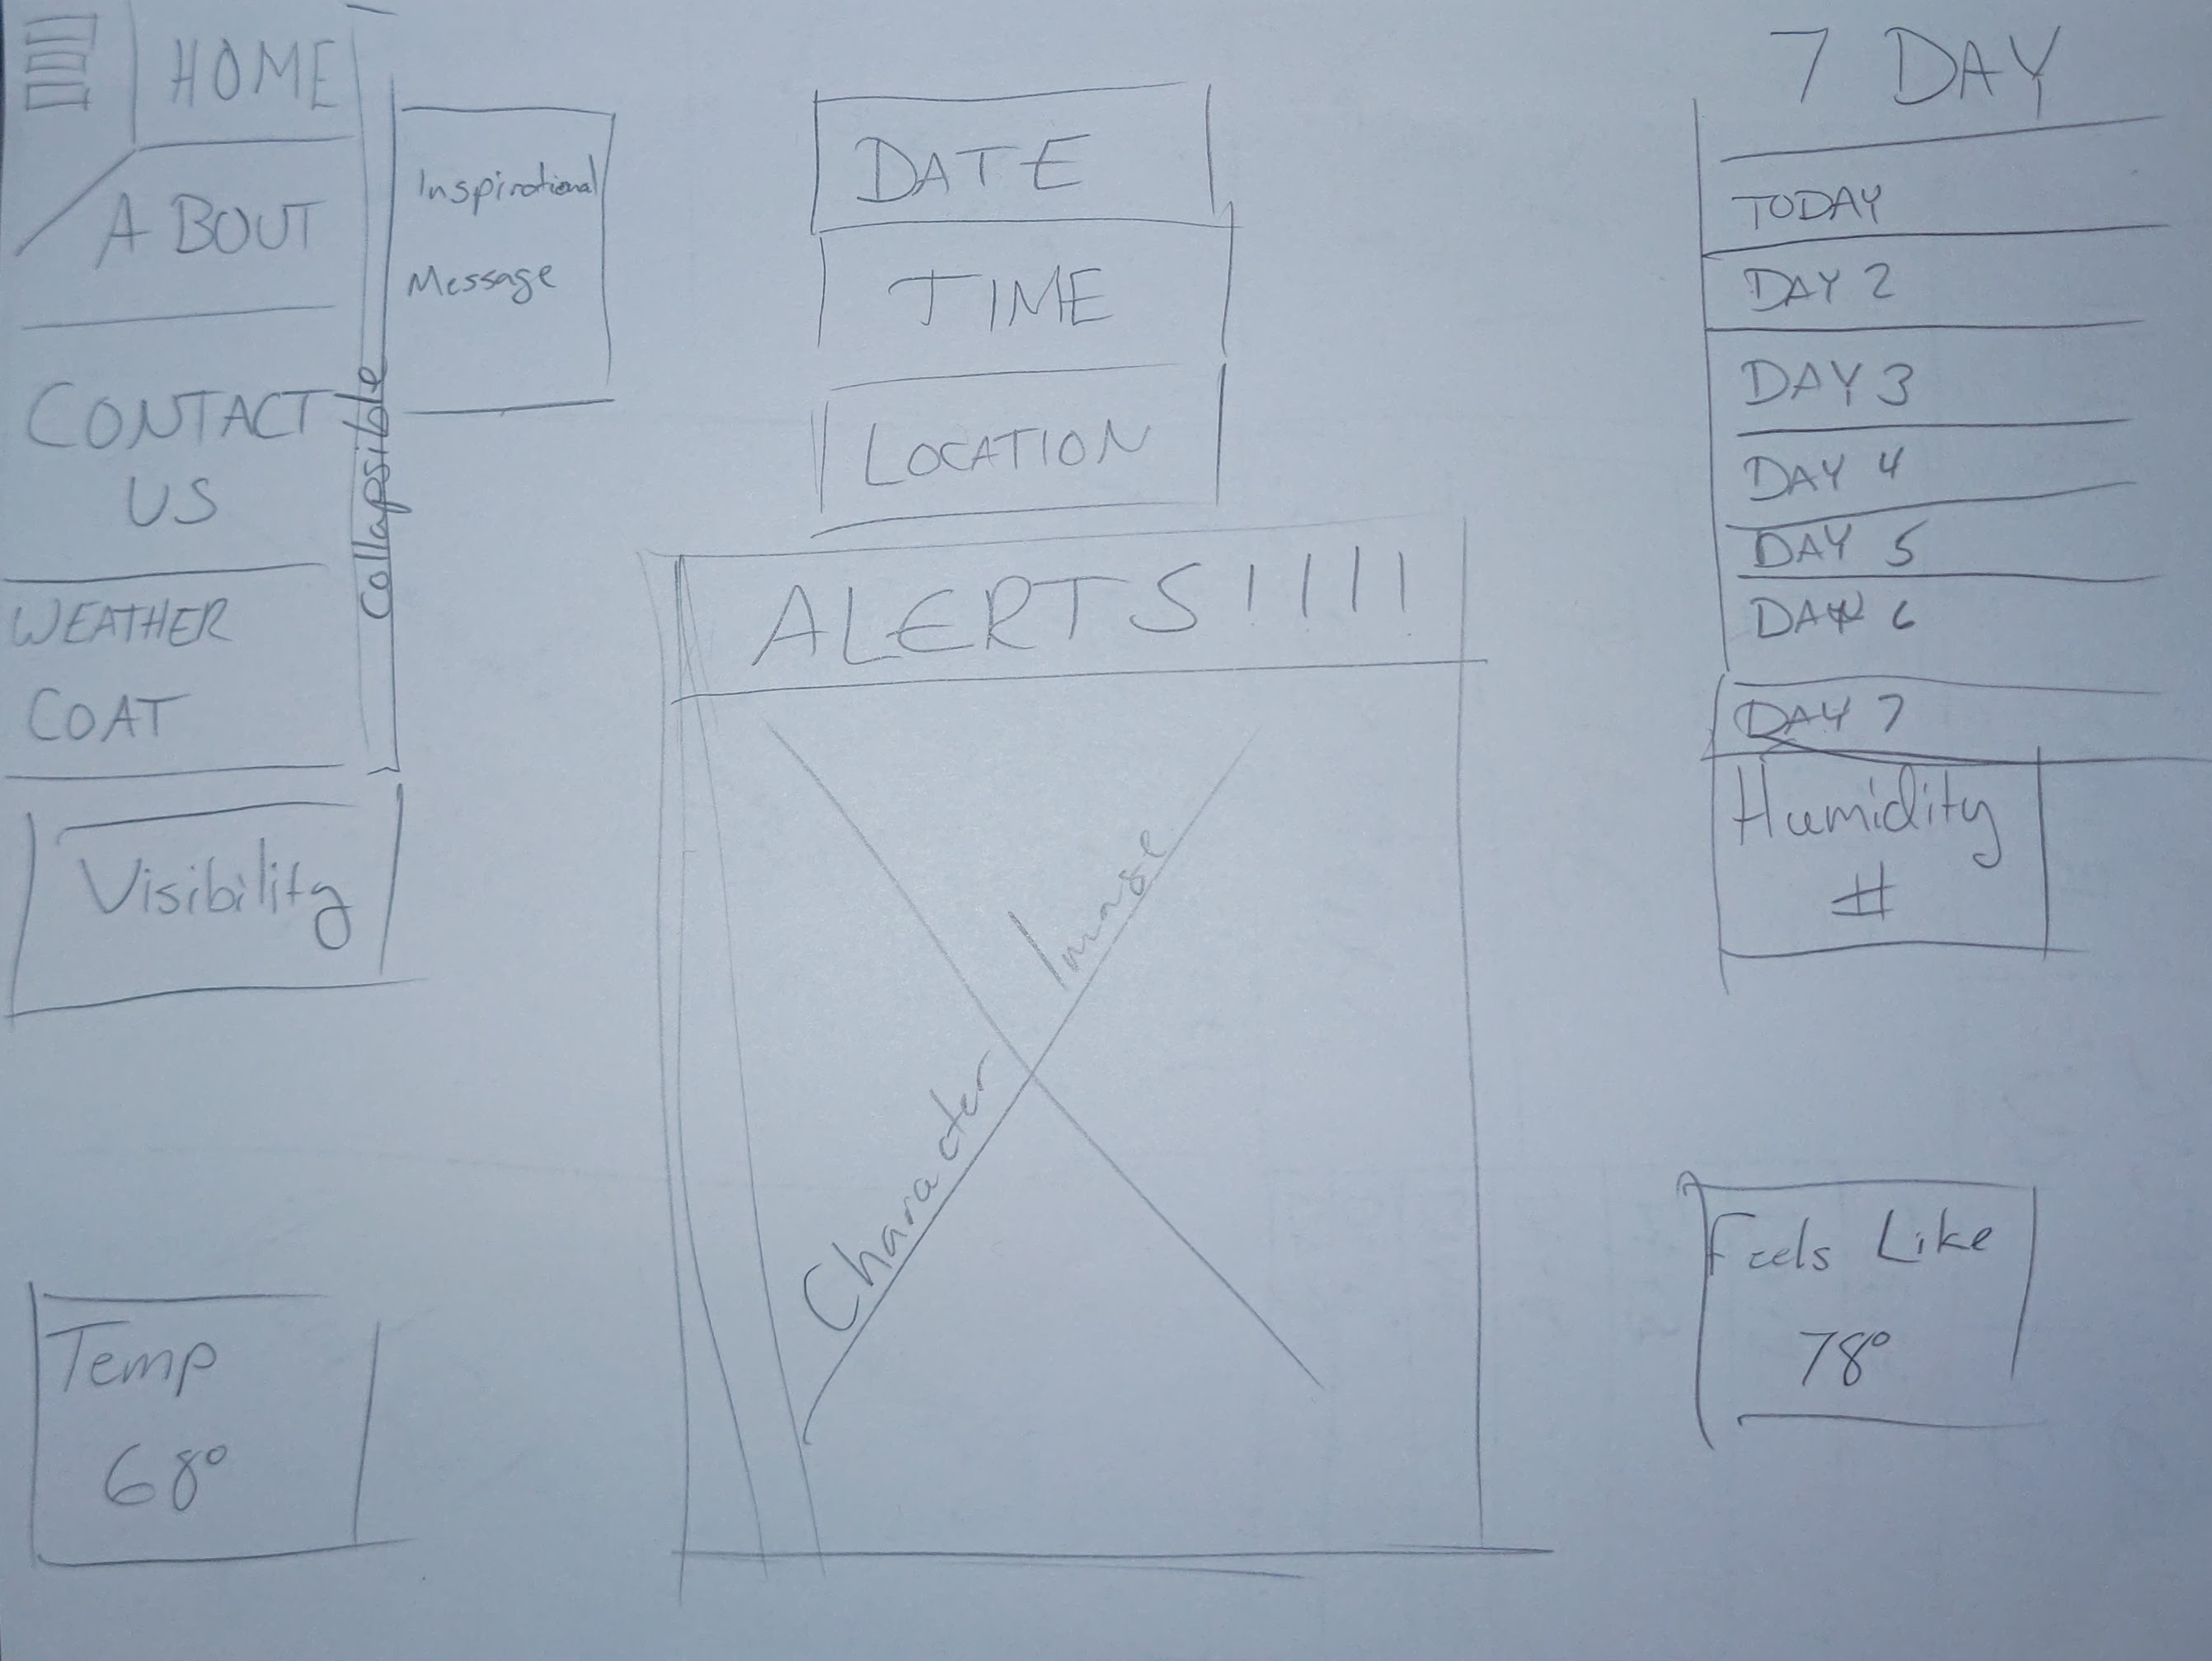 HOME
ABOUT
CONTACT
US
WEATHER
COAT
Collapsible
Inspirational
Message
Visibility
Temp
68°
DATE
TIME
LOCATION
ALERTS!!!!
Character Image
7 DAY
TODAY
DAY 2
DAY 3
DAY 4
DAY 5
DAY 6
DAY 7
Humidity
#
Feels Like
78°